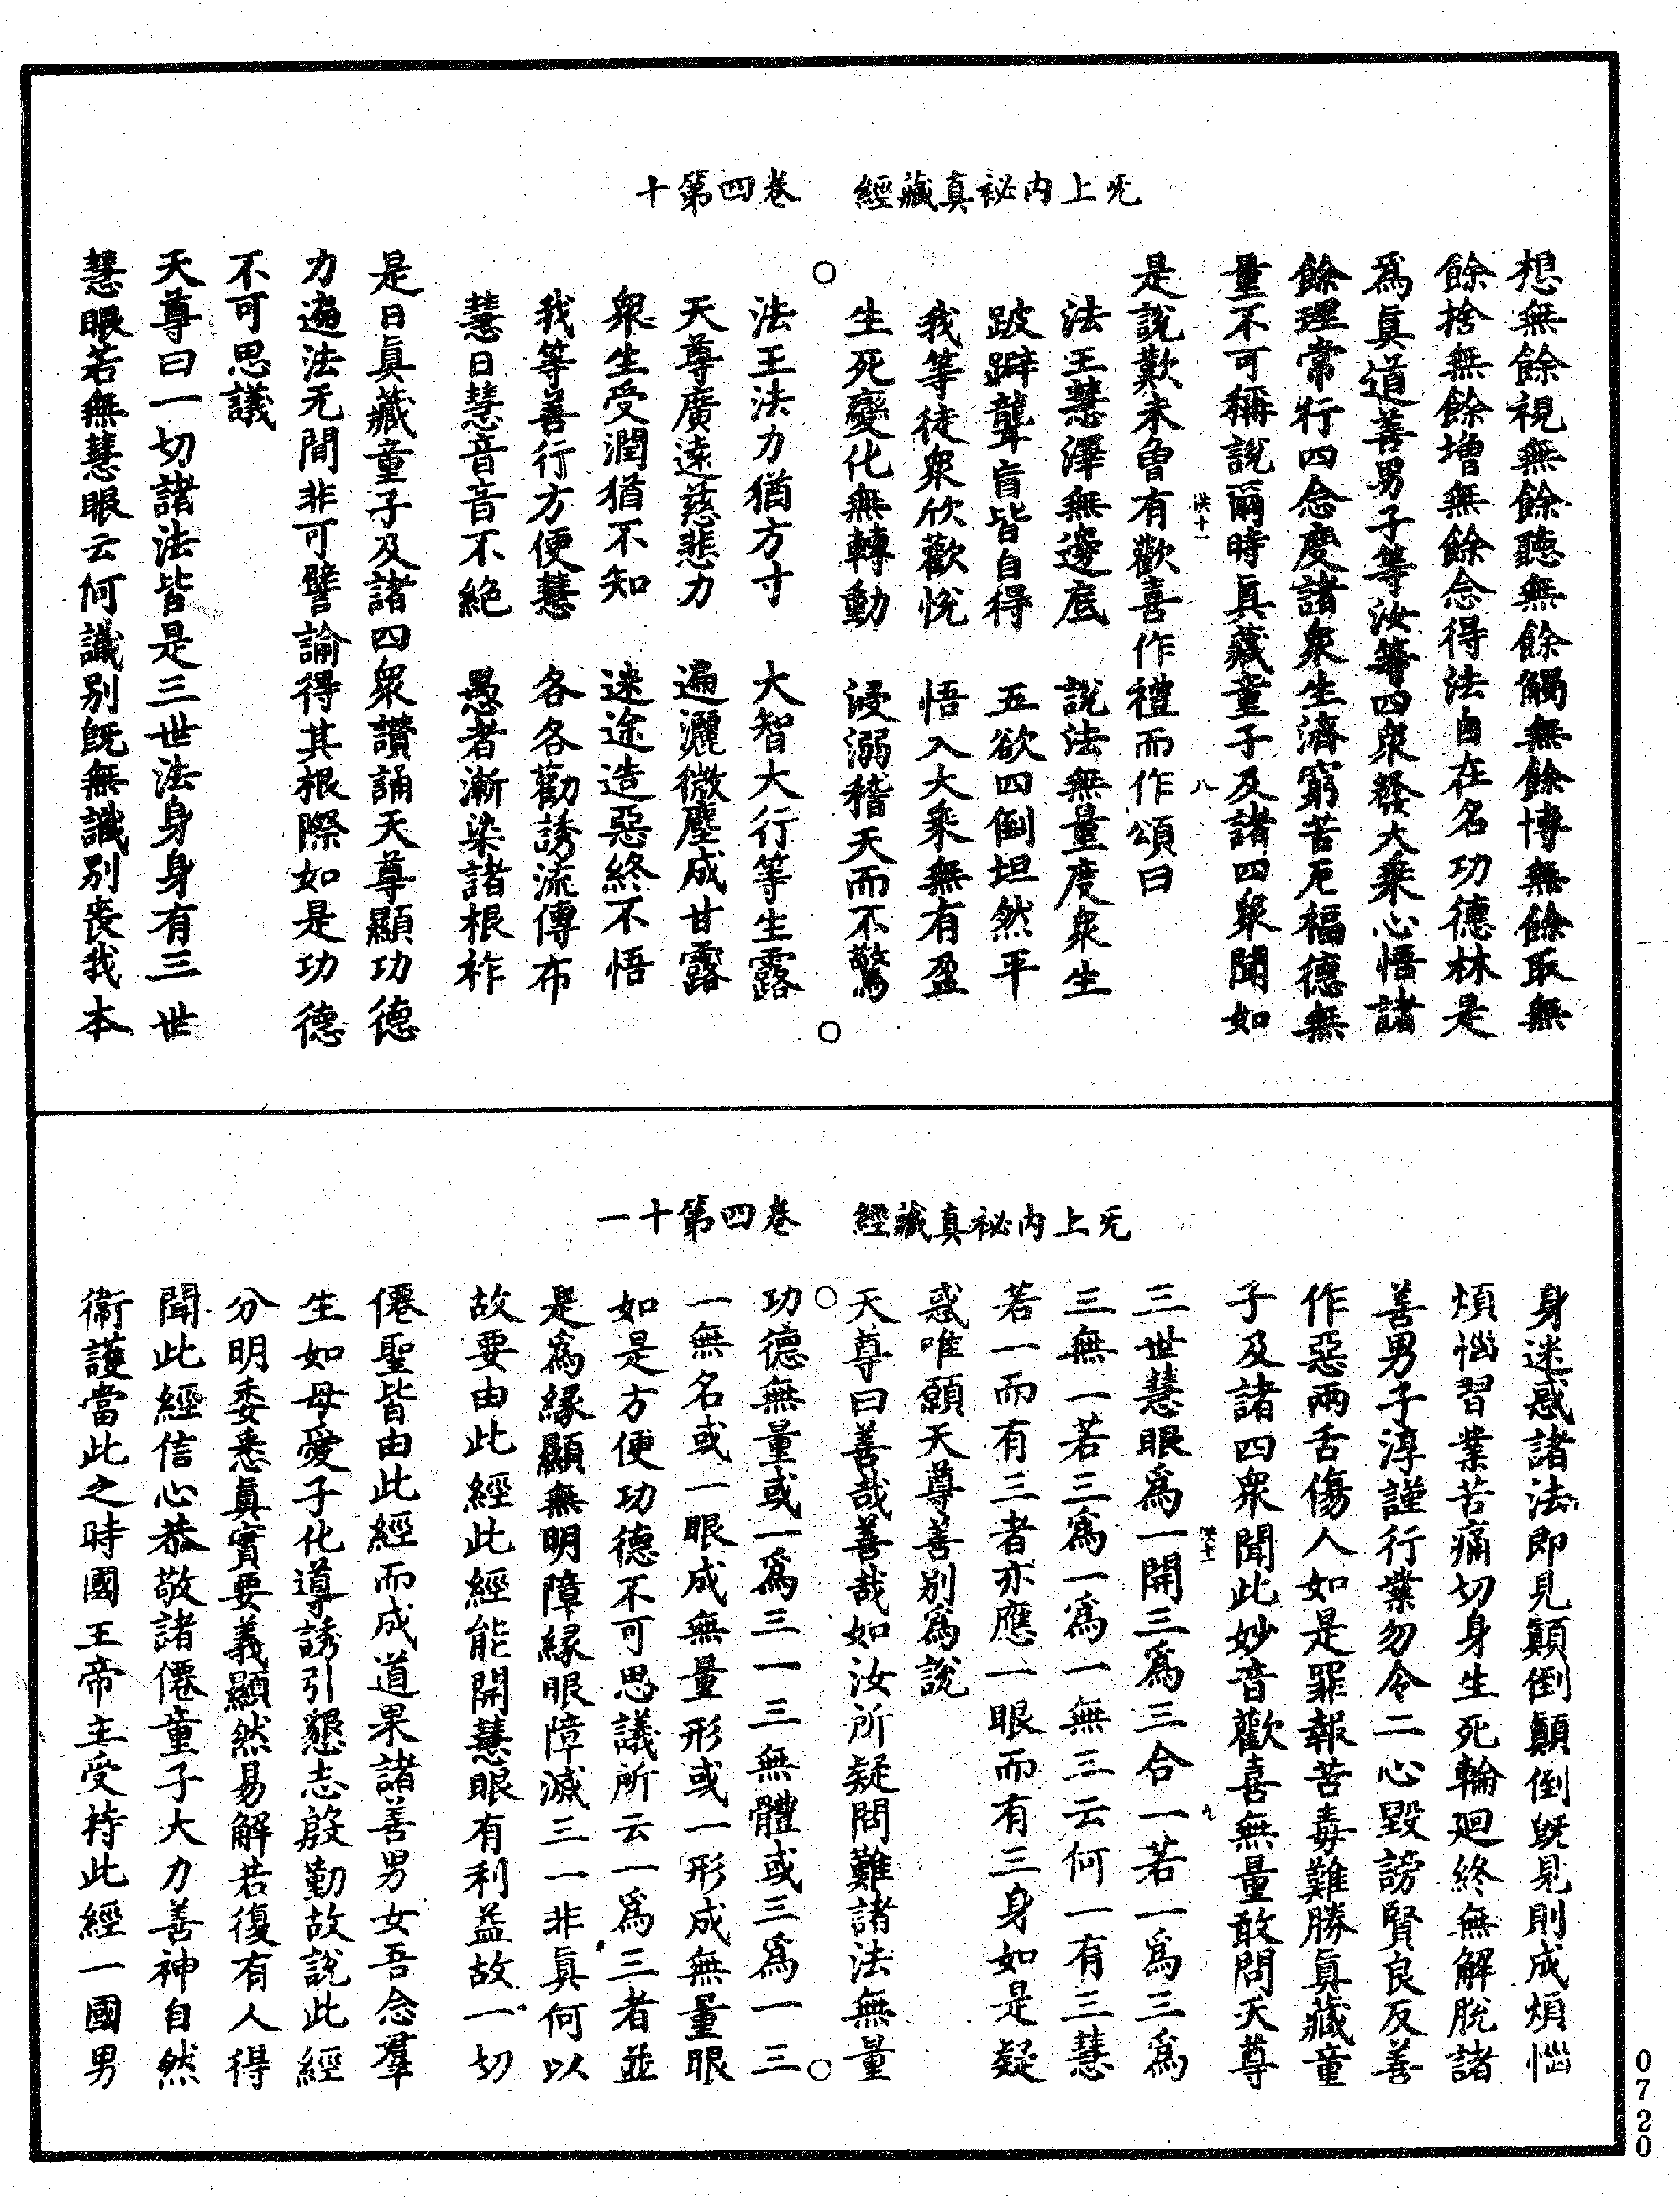 无上內祕真藏經　卷四第十
想無餘視無餘聽無餘觸無餘博無餘取無
餘捨無餘增無餘念得法自在名功德林是
爲眞道善男子等汝等四衆發大乘心悟諸
餘理常行四念度諸衆生濟窮苦厄福德無
量不可稱說爾時眞藏童子及諸四衆聞如
八
是說歎未曾有歡喜作禮而作頌曰
法王慧澤無邊底　說法無量度衆生
跛躃聾盲皆自得　五欲四倒坦然平
我等徒衆欣歡悅　悟入大乘無有盈
生死變化無轉動　浸溺稽天而不驚
法王法力猶方寸　大智大行等生露
天尊廣遠慈悲力　遍灑微塵成甘露
衆生受潤猶不知　迷途造惡終不悟
我等善行方便慧　各各勸誘流傳布
慧日慧音音不絕　愚者漸染諸根祚
是日眞藏童子及諸四衆讚誦天尊顯功德
力遍法无間非可譬諭得其根際如是功德
不可思議
天尊曰一切諸法皆是三世法身身有三世
慧眼若無慧眼云何識別旣無識別喪我本
无上內祕真藏經　卷四第十一
身迷惑諸法即見顛倒顛倒旣見則成煩惱
煩惱習業苦痛切身生死輪廻終無解脫諸
善男子淳謹行業勿令二心毀謗賢良反善
作惡兩舌傷人如是罪報苦毒難勝眞藏童
子及諸四衆聞此妙音歡喜無量敢問天尊
九
三世慧眼爲一開三爲三合一若一爲三爲
三無一若三爲一爲一無三云何一有三慧
若一而有三者亦應一眼而有三身如是疑
惑唯願天尊善別爲說
天尊曰善哉善哉如汝所疑問難諸法無量
功德無量或一爲三一三無體或三爲一三
一無名或一眼成無量形或一形成無量眼
如是方便功德不可思議所云一爲三者並
是爲緣顯無明障緣眼障滅三一非眞何以
故要由此經此經能開慧眼有利益故一切
僊聖皆由此經而成道果諸善男女吾念羣
生如母愛子化導誘引懇志慇勤故說此經
分明委悉眞實要義顯然易解若復有人得
聞此經信心恭敬諸僊童子大力善神自然
衞護當此之時國王帝主受持此經一國男
0720